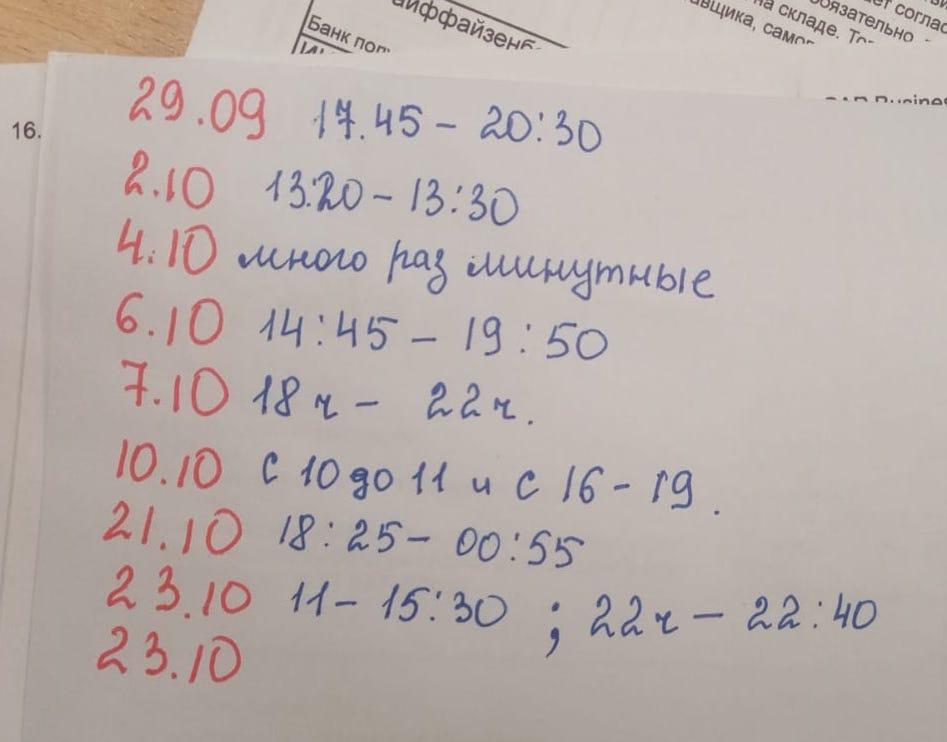 айффайзенб
Банк пол
на складе. То
16.
29.09 17.45 – 20:30
2.10 13:20 – 13:30
4.10 много раз минутные
6.10 14:45 – 19:50
7.10 18ч – 22ч.
10.10 с 10 до 11 и с 16 – 19.
21.10 18:25 – 00:55
23.10 11 – 15:30 ; 22ч – 22:40
23.10